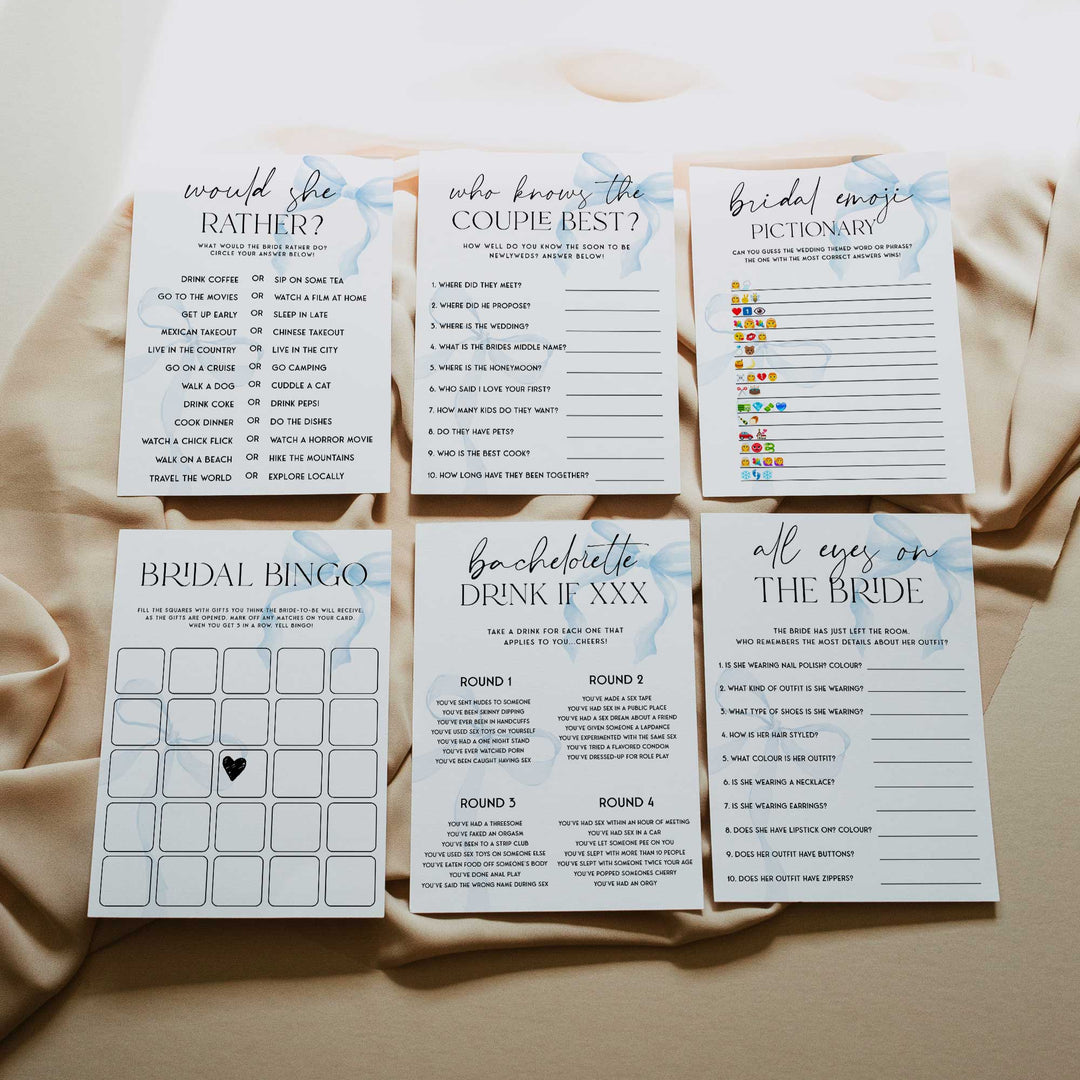 would she
RATHER?
WHAT WOULD THE BRIDE RATHER DO?
CIRCLE YOUR ANSWER BELOW!
DRINK COFFEE OR SIP ON SOME TEA
GO TO THE MOVIES OR WATCH A FILM AT HOME
GET UP EARLY OR SLEEP IN LATE
MEXICAN TAKEOUT OR CHINESE TAKEOUT
LIVE IN THE COUNTRY OR LIVE IN THE CITY
GO ON A CRUISE OR GO CAMPING
WALK A DOG OR CUDDLE A CAT
DRINK COKE OR DRINK PEPSI
COOK DINNER OR DO THE DISHES
WATCH A CHICK FLICK OR WATCH A HORROR MOVIE
WALK ON A BEACH OR HIKE THE MOUNTAINS
TRAVEL THE WORLD OR EXPLORE LOCALLY
who knows the
COUPLE BEST?
HOW WELL DO YOU KNOW THE SOON TO BE
NEWLYWEDS? ANSWER BELOW!
1. WHERE DID THEY MEET?
2. WHERE DID HE PROPOSE?
3. WHERE IS THE WEDDING?
4. WHAT IS THE BRIDES MIDDLE NAME?
5. WHERE IS THE HONEYMOON?
6. WHO SAID I LOVE YOUR FIRST?
7. HOW MANY KIDS DO THEY WANT?
8. DO THEY HAVE PETS?
9. WHO IS THE BEST COOK?
10. HOW LONG HAVE THEY BEEN TOGETHER?
bridal emoji
PICTIONARY
CAN YOU GUESS THE WEDDING THEMED WORD OR PHRASE?
THE ONE WITH THE MOST CORRECT ANSWERS WINS!
BRIDAL BINGO
FILL THE SQUARES WITH GIFTS YOU THINK THE BRIDE-TO-BE WILL RECEIVE.
AS THE GIFTS ARE OPENED, MARK OFF ANY MATCHES ON YOUR CARD.
WHEN YOU GET 5 IN A ROW, YELL BINGO!
bachelorette
DRINK IF XXX
TAKE A DRINK FOR EACH ONE THAT
APPLIES TO YOU...CHEERS!
ROUND 1
YOU'VE SENT NUDES TO SOMEONE
YOU'VE BEEN SKINNY DIPPING
YOU'VE EVER BEEN IN HANDCUFFS
YOU'VE USED SEX TOYS ON YOURSELF
YOU'VE HAD A ONE NIGHT STAND
YOU'VE EVER WATCHED PORN
YOU'VE BEEN CAUGHT HAVING SEX
ROUND 2
YOU'VE MADE A SEX TAPE
YOU'VE HAD SEX IN A PUBLIC PLACE
YOU'VE HAD A SEX DREAM ABOUT A FRIEND
YOU'VE GIVEN SOMEONE A LAPDANCE
YOU'VE EXPERIMENTED WITH THE SAME SEX
YOU'VE TRIED A FLAVORED CONDOM
YOU'VE DRESSED-UP FOR ROLE PLAY
ROUND 3
YOU'VE HAD A THREESOME
YOU'VE FAKED AN ORGASM
YOU'VE BEEN TO A STRIP CLUB
YOU'VE USED SEX TOYS ON SOMEONE ELSE
YOU'VE EATEN FOOD OFF SOMEONE'S BODY
YOU'VE DONE ANAL PLAY
YOU'VE SAID THE WRONG NAME DURING SEX
ROUND 4
YOU'VE HAD SEX WITHIN AN HOUR OF MEETING
YOU'VE HAD SEX IN A CAR
YOU'VE LET SOMEONE PEE ON YOU
YOU'VE SLEPT WITH MORE THAN 10 PEOPLE
YOU'VE SLEPT WITH SOMEONE TWICE YOUR AGE
YOU'VE POPPED SOMEONES CHERRY
YOU'VE HAD AN ORGY
all eyes on
THE BRIDE
THE BRIDE HAS JUST LEFT THE ROOM.
WHO REMEMBERS THE MOST DETAILS ABOUT HER OUTFIT?
1. IS SHE WEARING NAIL POLISH? COLOUR?
2. WHAT KIND OF OUTFIT IS SHE WEARING?
3. WHAT TYPE OF SHOES IS SHE WEARING?
4. HOW IS HER HAIR STYLED?
5. WHAT COLOUR IS HER OUTFIT?
6. IS SHE WEARING A NECKLACE?
7. IS SHE WEARING EARRINGS?
8. DOES SHE HAVE LIPSTICK ON? COLOUR?
9. DOES HER OUTFIT HAVE BUTTONS?
10. DOES HER OUTFIT HAVE ZIPPERS?